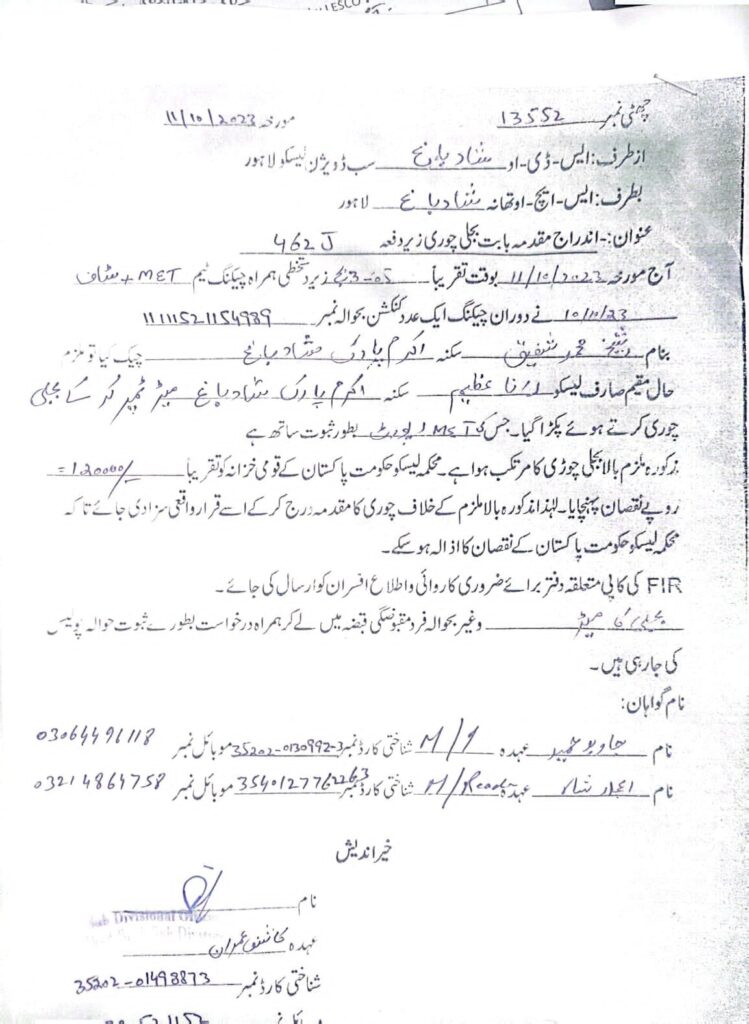 چھٹی نمبر 13552 مورخہ 11/10/2023
از طرف: ایس-ڈی-او شاد باغ سب ڈویژن لیسکو لاہور
بطرف: ایس-ایچ-او تھانہ شاد باغ لاہور
عنوان:- اندراج مقدمہ بابت بجلی چوری زیر دفعہ 462J
آج مورخہ 11/10/2023 بوقت تقریباً 3-05 بجے زیر دستخطی ہمراہ چیکنگ ٹیم MET + سٹاف
10/10/23 نے دوران چیکنگ ایک عدد کنکشن بحوالہ نمبر 11111521154989
بنام شیخ محمد شفیق سکنہ اکرم پارک شاد باغ چیک کیا تو ملزم
حال مقیم صارف لیسکو رانا عظیم سکنہ اکرم پارک شاد باغ میٹر ٹمپر کر کے بجلی
چوری کرتے ہوئے پکڑا گیا۔ جس کی MET رپورٹ بطور ثبوت ساتھ ہے
مذکورہ ملزم بالا بجلی چوڑی کا مرتکب ہوا ہے۔ محکمہ لیسکو حکومت پاکستان کے قومی خزانہ کو تقریباً 120000/=
روپے نقصان پہنچایا۔ لہٰذا مذکورہ بالا ملزم کے خلاف چوری کا مقدمہ درج کر کے اسے قرار واقعی سزا دی جائے تا کہ
محکمہ لیسکو حکومت پاکستان کے نقصان کا ازالہ ہو سکے۔
FIR کی کاپی متعلقہ دفتر برائے ضروری کاروائی و اطلاع افسران کو ارسال کی جائے۔
بجلی کا میٹر وغیر بحوالہ فرد مقبوضگی قبضہ میں لے کر ہمراہ درخواست بطورے ثبوت حوالہ پولیس
کی جارہی ہیں۔
نام گواہان:
نام جاوید حمید عہدہ M/I شناختی کارڈ نمبر 35202-0130992-3 موبائل نمبر 03064491118
نام اعجاز شاہ عہدہ M/Reader شناختی کارڈ نمبر 3540127762263 موبائل نمبر 03214864758
خیر اندیش
نام
Sub Divisional
عہدہ کاشف عمران
شناختی کارڈ نمبر 35202-01498873